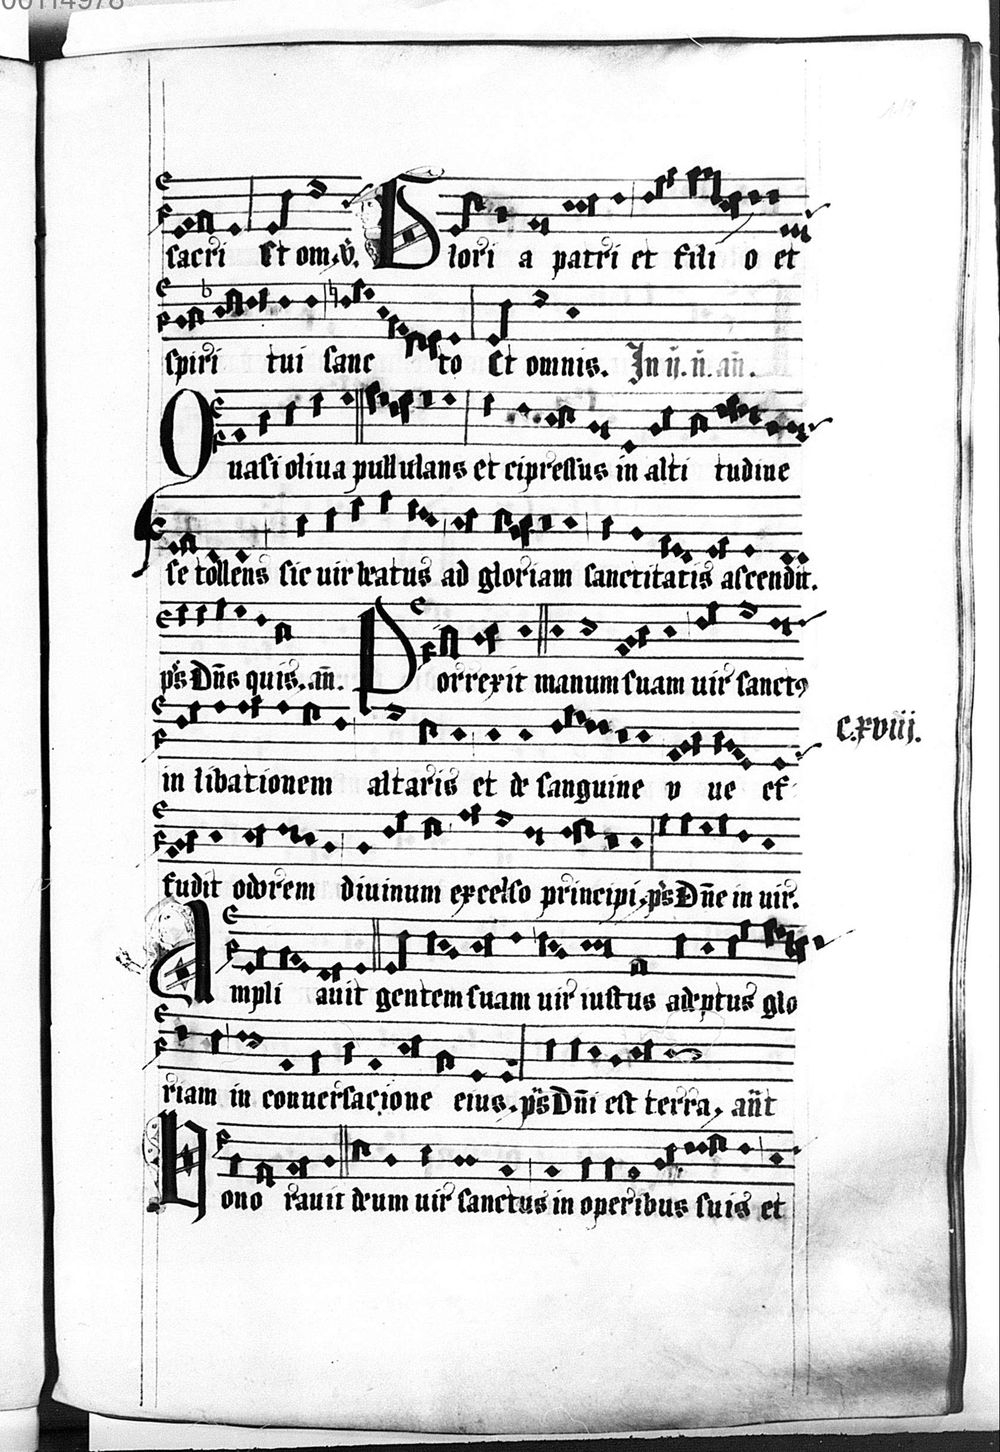 00114978
119
sacri Et om. v̄. Glori a patri et fili o et
spiri tui sanc to Et omnis. In ij. n̄. an̄.
Quasi oliua pullulans et cipressus in alti tudine
se tollens sic uir beatus ad gloriam sanctitatis ascendit.
p̄s Dn̄e quis. an̄. Porrexit manum suam uir sanctꝰ
C.xviij.
in libationem altaris et de sanguine v ue ef
fudit odorem diuinum excelso principi. p̄s Dn̄e in uir.
Ampli auit gentem suam uir iustus adeptus glo
riam in conuersacione eius. p̄s Dn̄i est terra. an̄t
Hono rauit deum uir sanctus in operibus suis et